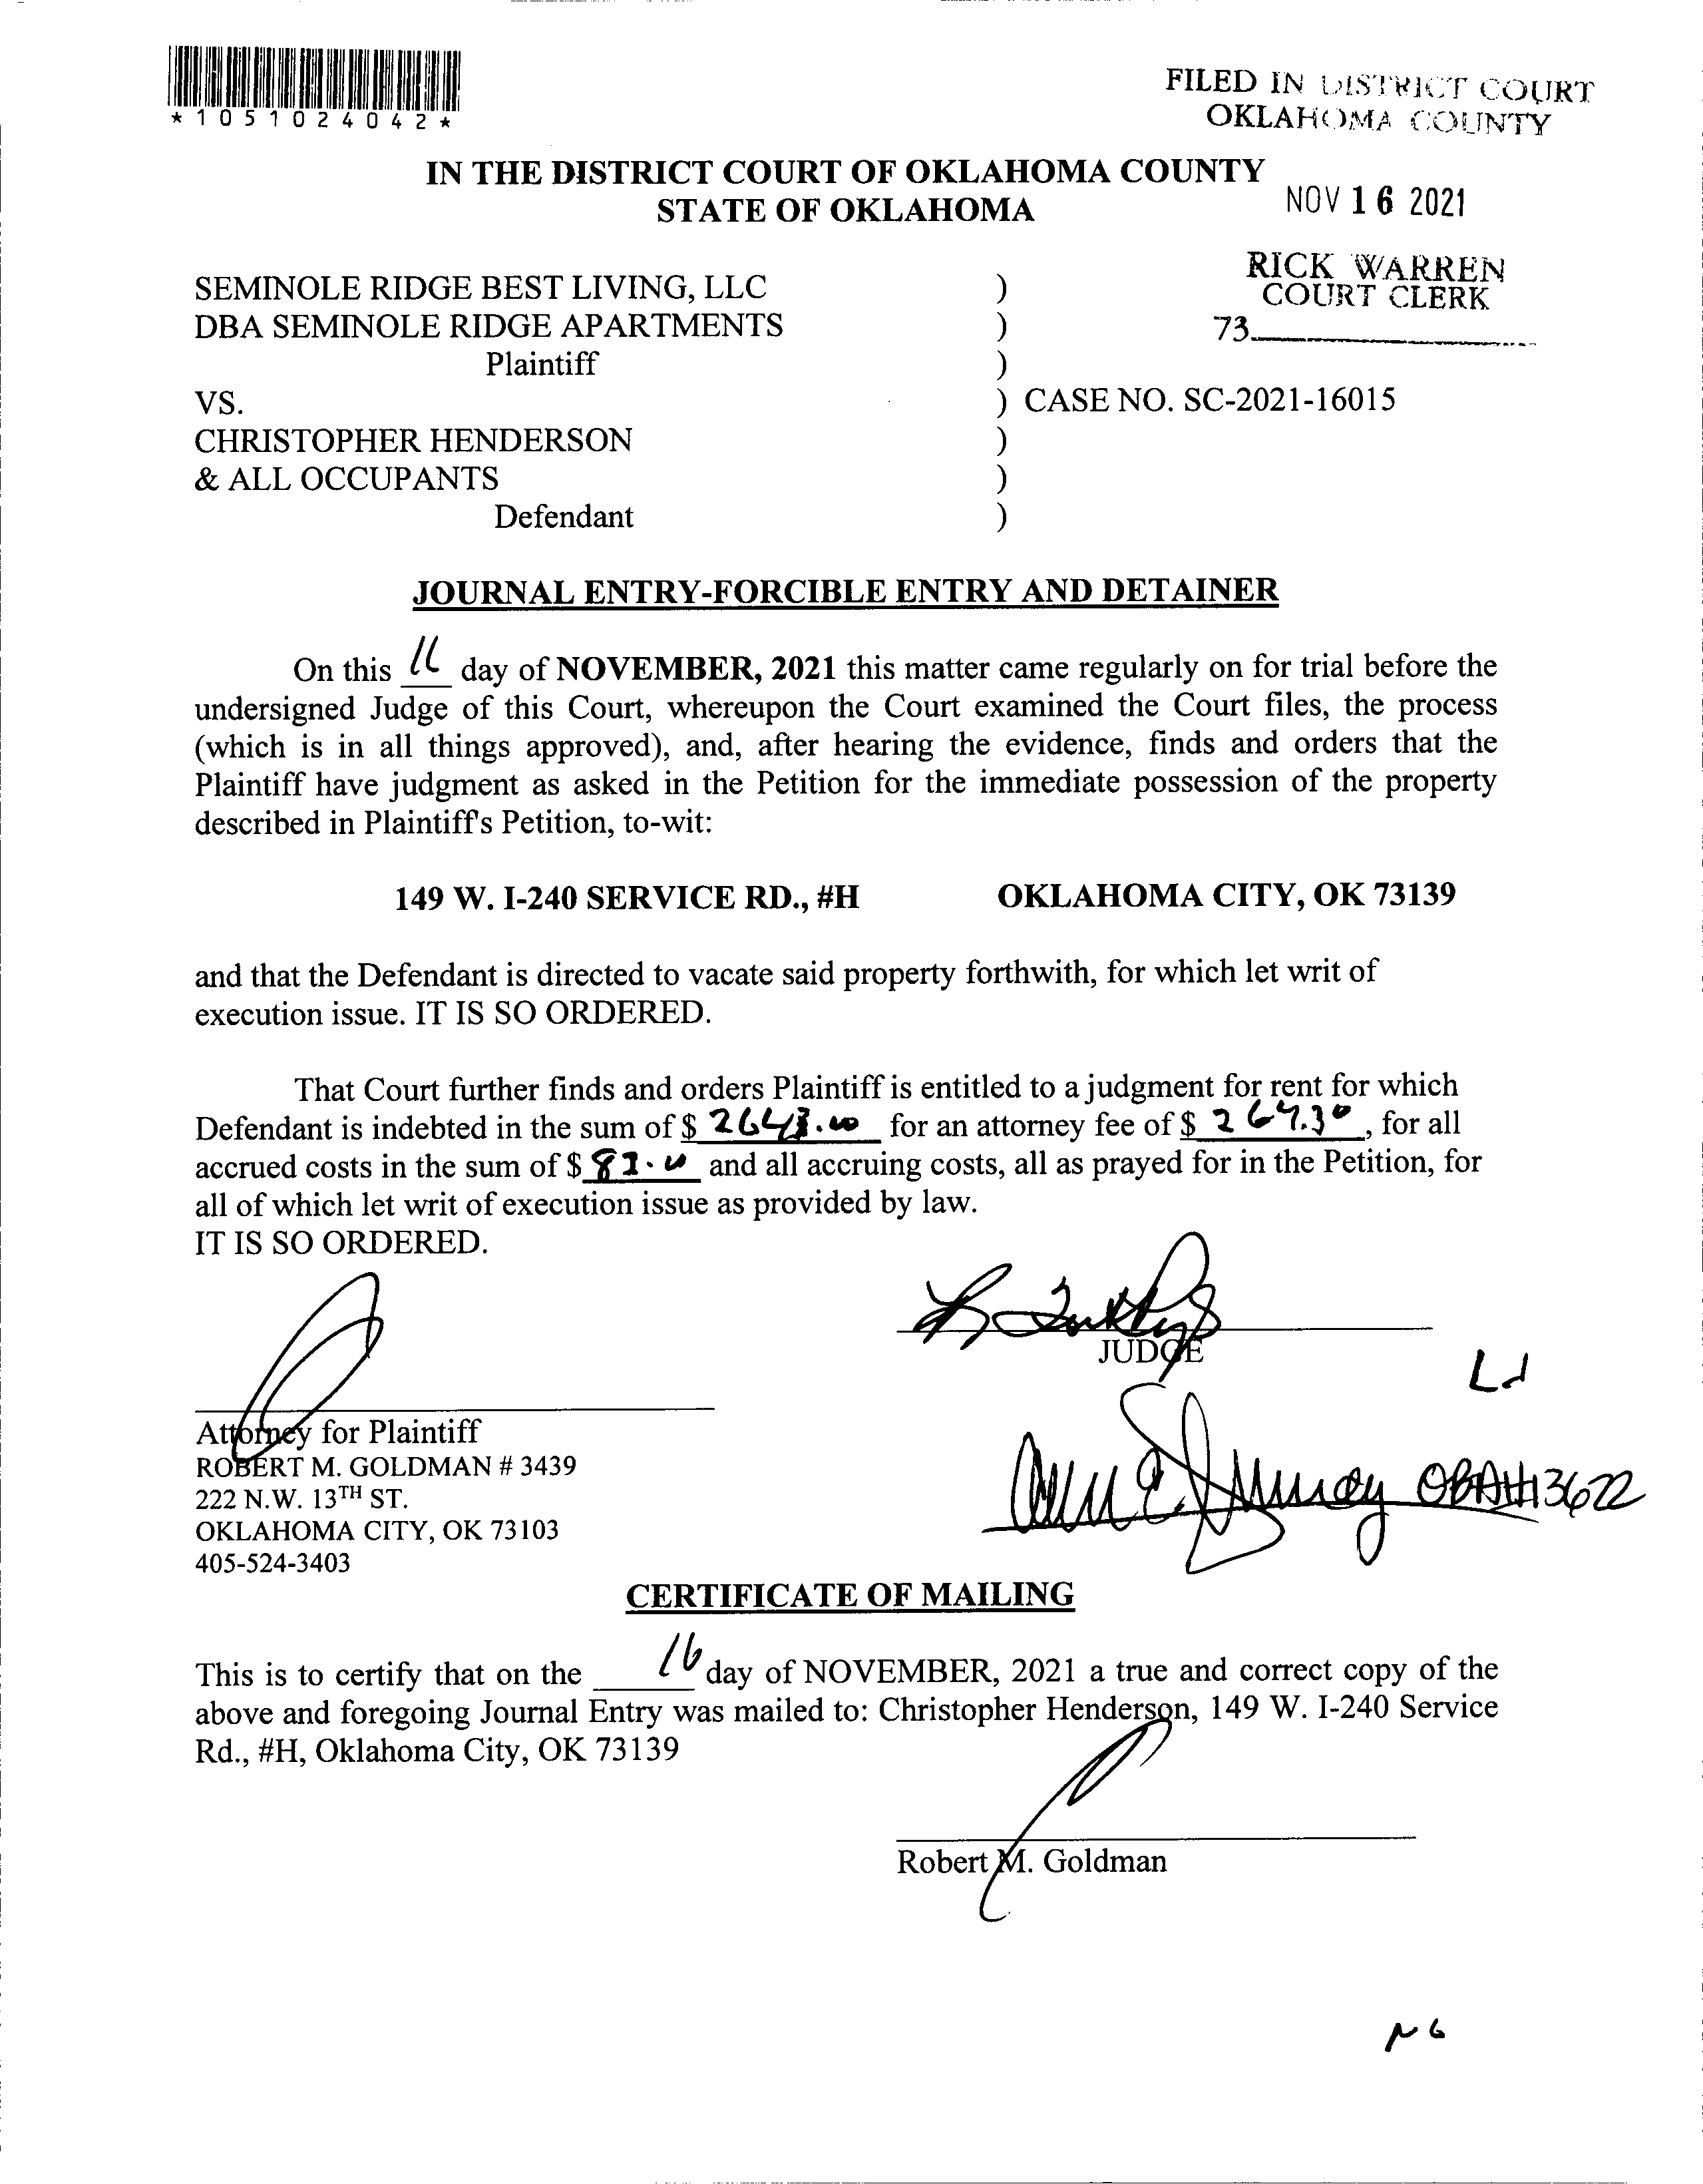 *1051024042*
FILED IN DISTRICT COURT
OKLAHOMA COUNTY
IN THE DISTRICT COURT OF OKLAHOMA COUNTY
STATE OF OKLAHOMA
NOV 16 2021
RICK WARREN
COURT CLERK
73
SEMINOLE RIDGE BEST LIVING, LLC )
DBA SEMINOLE RIDGE APARTMENTS )
Plaintiff )
VS. ) CASE NO. SC-2021-16015
CHRISTOPHER HENDERSON )
& ALL OCCUPANTS )
Defendant )
JOURNAL ENTRY-FORCIBLE ENTRY AND DETAINER
On this 16 day of NOVEMBER, 2021 this matter came regularly on for trial before the
undersigned Judge of this Court, whereupon the Court examined the Court files, the process
(which is in all things approved), and, after hearing the evidence, finds and orders that the
Plaintiff have judgment as asked in the Petition for the immediate possession of the property
described in Plaintiff's Petition, to-wit:
149 W. I-240 SERVICE RD., #H OKLAHOMA CITY, OK 73139
and that the Defendant is directed to vacate said property forthwith, for which let writ of
execution issue. IT IS SO ORDERED.
That Court further finds and orders Plaintiff is entitled to a judgment for rent for which
Defendant is indebted in the sum of $ 2643.00 for an attorney fee of $ 264.30, for all
accrued costs in the sum of $ and all accruing costs, all as prayed for in the Petition, for
all of which let writ of execution issue as provided by law.
IT IS SO ORDERED.
JUDGE
Attorney for Plaintiff
ROBERT M. GOLDMAN # 3439
222 N.W. 13TH ST.
OKLAHOMA CITY, OK 73103
405-524-3403
OBA#13622
CERTIFICATE OF MAILING
This is to certify that on the 16 day of NOVEMBER, 2021 a true and correct copy of the
above and foregoing Journal Entry was mailed to: Christopher Henderson, 149 W. I-240 Service
Rd., #H, Oklahoma City, OK 73139
Robert M. Goldman